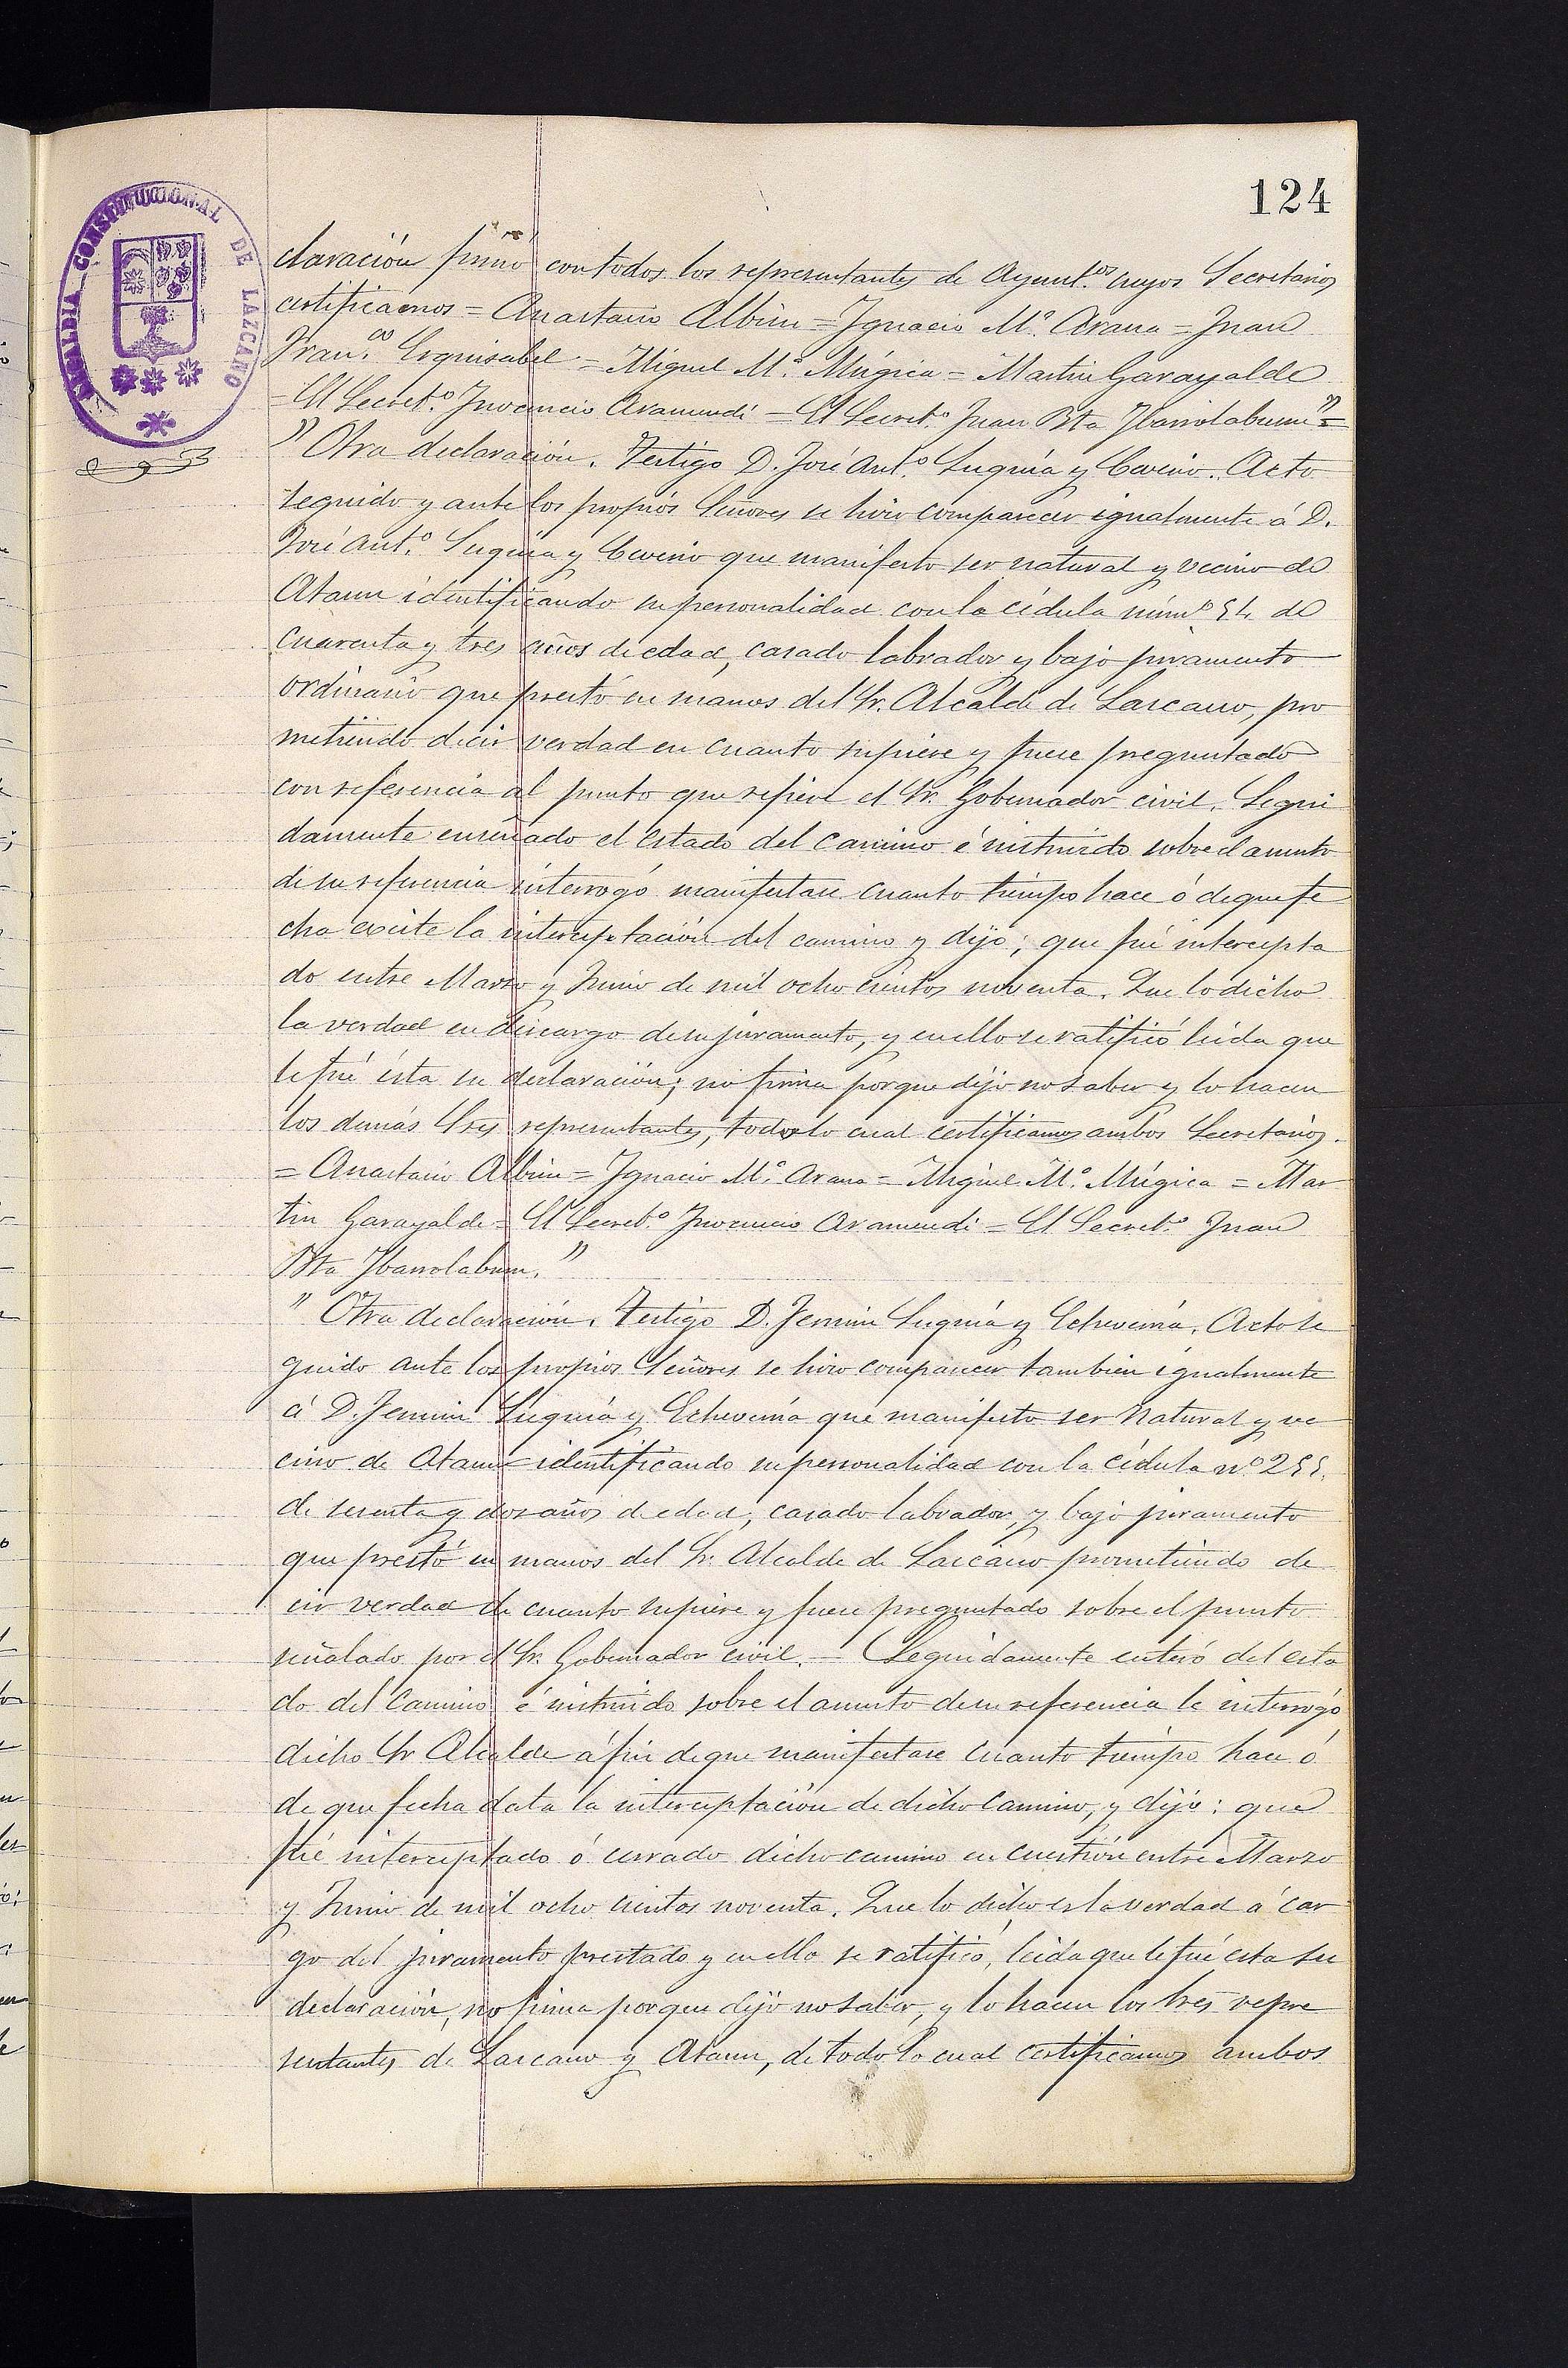 124
ALCALDIA CONSTITUCIONAL DE LAZCANO
claración firmó con todos los representantes de Ayunt.os cuyos Secretarios
certificamos = Anastasio Albisu = Ignacio M.ª Arana = Juan
Fran.co Esquisabel = Miguel M.ª Múgica = Martin Garayalde
= El Secret.º Inocencio Aramendi = El Secret.º Juan Bta Ybarrolaburu" =
" Otra declaración. Testigo D. José Ant.º Suquía y . Acto
seguido y ante los propios Señores se hizo comparecer igualmente á D.
José Ant.º Suquía y que manifesto ser natural y vecino de
Ataun identificando su personalidad con la cédula núm.º 54. de
cuarenta y tres años de edad, casado labrador y bajo juramento
ordinario que prestó en manos del Sr. Alcalde de Lazcano, pro
metiendo decir verdad en cuanto supiere y fuere preguntado
con referencia al punto que refiere el Sr. Gobernador civil. Segui
damente enseñado el estado del camino é instruido sobre el asunto
de su referencia interrogó manifestase cuanto tiempo hace ó de que fe
cha existe la interceptación del camino y dijo; que fué intercepta
do entre Marzo y Junio de mil ocho cientos noventa. Que lo dicho
la verdad en descargo de su juramento, y en ello se ratificó leida que
le fué ésta su declaración; no firma porque dijo no saber y lo hacen
los demás Sres representantes, todo lo cual certificamos ambos Secretarios.
= Anastasio Albisu = Ignacio M.ª Arana = Miguel M.ª Múgica = Mar
tin Garayalde = El Secret.º Inocencio Aramendi = El Secret.º Juan
Bta Ybarrolaburu. "
" Otra declaración. Testigo D. Fermin Suquía y Echeverría. Acto se
guido ante los propios Señores se hizo comparecer tambien igualmente
á D. Fermin Suquía y Echeverría que manifesto ser natural y ve
cino de Ataun identificando su personalidad con la cédula nº 255.
de sesenta y dos años de edad, casado labrador, y bajo juramento
que prestó en manos del Sr. Alcalde de Lazcano prometiendo de
cir verdad de cuanto supiere y fuere preguntado sobre el punto
señalado por el Sr. Gobernador civil. — Seguidamente enteró del esta
do del camino é instruido sobre el asunto de su referencia le interrogó
dicho Sr Alcalde á fin de que manifestase cuanto tiempo hace ó
de que fecha data la interceptación de dicho camino, y dijo: que
fué interceptado ó cerrado dicho camino en cuestión entre Marzo
y Junio de mil ocho cientos noventa. Que lo dicho es la verdad á car
go del juramento prestado y en ello se ratificó, leida que le fué esta su
declaración, no firma porque dijo no saber, y lo hacen los tres repre
sentantes de Lazcano y Ataun, de todo lo cual certificamos ambos